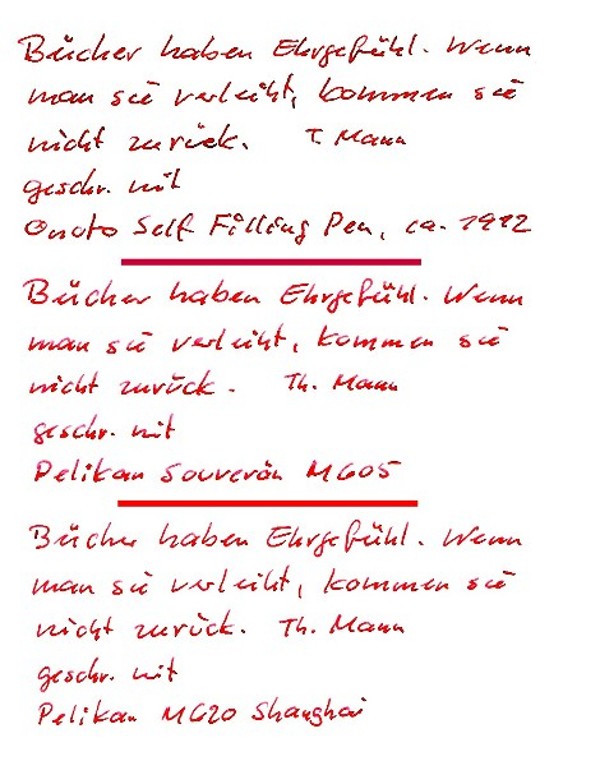 Bücher haben Ehrgefühl. Wenn
man sie verleiht, kommen sie
nicht zurück. T. Mann
geschr. mit
Onoto Self Filling Pen, ca. 1912
Bücher haben Ehrgefühl. Wenn
man sie verleiht, kommen sie
nicht zurück. Th. Mann
geschr. mit
Pelikan Souverän M605
Bücher haben Ehrgefühl. Wenn
man sie verleiht, kommen sie
nicht zurück. Th. Mann
geschr. mit
Pelikan M620 Shanghai